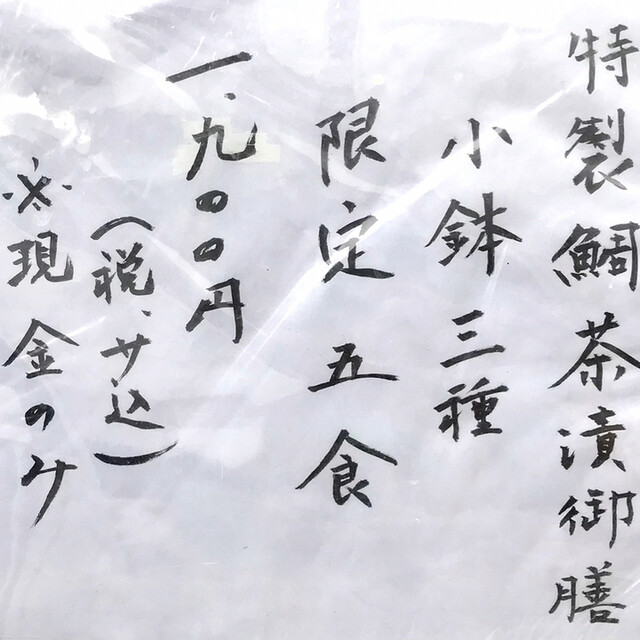 特製鯛茶漬御膳
小鉢三種
限定五食
一、九〇〇円
（税、サ込）
※現金のみ